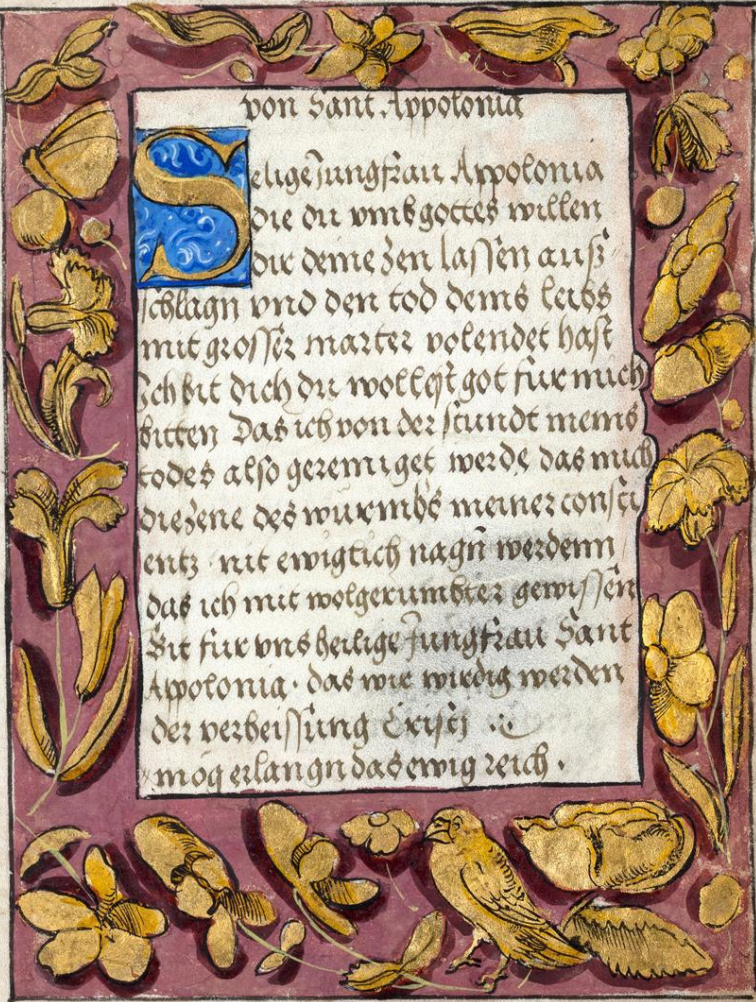 von Sant Appolonia
Selige Jungfrau Appolonia
die du vmb gottes willen
dir deine zen lassen auß
schlagn vnd den tod deins leibs
mit grosser marter volendet hast
Ich bit dich du wollest got fur mich
bitten Das ich von der stundt meins
todes also gereiniget werde das mich
die zene des wurmbs meiner consci
entz nit ewigklich nagn werdenn
das ich mit wolgerumbter gewissen
Bit fur vns heilige Jungfrau Sant
Appolonia· das wir wirdig werden
der verheissung Cristj
mög erlangn das ewig reich·